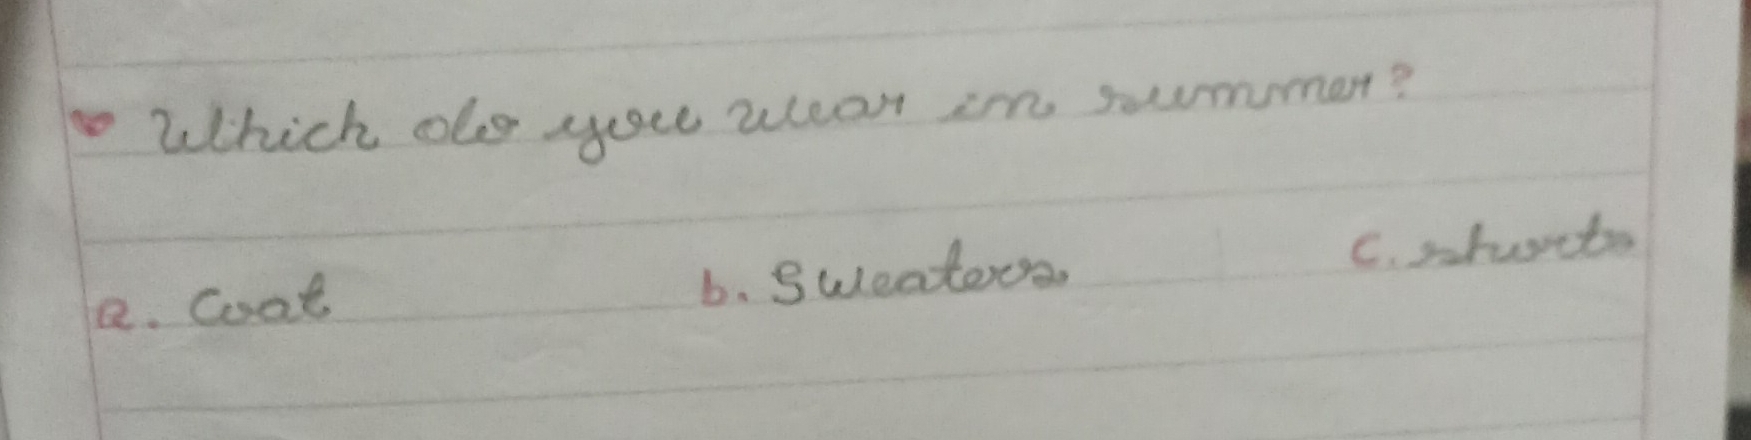 Which do you wear in summer?
a. Coat b. Sweaters c. shorts